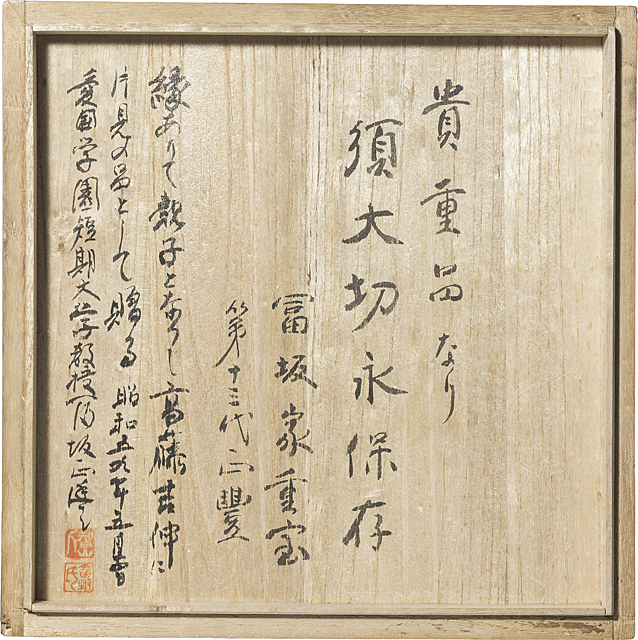 貴重品なり
須大切永保存
冨坂家重宝
第十三代正豐
縁ありて親子となりし高藤吉伸に
片見の品として贈る 昭和五九年五月
愛国学園短期大学教授 冨坂正豊